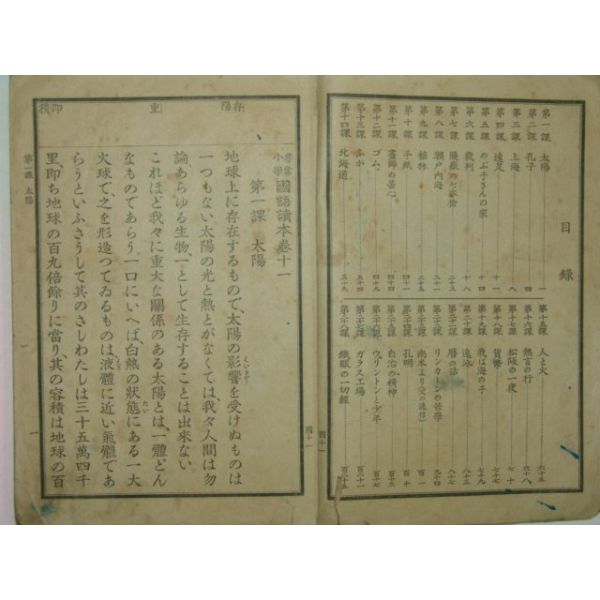 目錄
第一課 太陽 一
第二課 孔子 四
第三課 上海 八
第四課 遠足 十一
第五課 のぶ子さんの家 十四
第六課 裁判 十八
第七課 賤嶽の七本槍 二十三
第八課 瀨戶內海
第九課 植林
第十課 手紙
第十一課 畫師の苦心
第十二課 ゴム
第十三課 ふか
第十四課 北海道 五十九
第十五課 人と火 六十五
第十六課 無言の行 六十八
第十七課 松阪の一夜 七十
第十八課 貨幣 七十七
第十九課 我は海の子 七十九
第二十課 遠泳 八十三
第二十一課 曆の話 八十七
第二十二課 リンカーンの苦學 九十四
第二十三課 南米より(父の通信) 百一
第二十四課 孔明 百十
第二十五課 自治の精神 百十三
第二十六課 ウェリントンと少年 百十七
第二十七課 ガラス工場 百二十一
第二十八課 鐵眼の一切經 百二十五
尋常小學 國語讀本卷十一
第一課 太陽
地球上に存在するもので、太陽の影響を受けぬものは
一つもない。太陽の光と熱とがなくては、我々人間は勿
論、あらゆる生物、一として生存することは出來ない。
これほど我々に重大な關係のある太陽とは、一體どん
なものであらう。一口にいへば、白熱の狀態にある一大
火球で、之を形造つてゐるものは、液體に近い氣體であ
らうといふ。さうして其のさしわたしは三十五萬四千
里、卽ち地球の百九倍餘りに當り、其の容積は地球の百
第一課 太陽
一